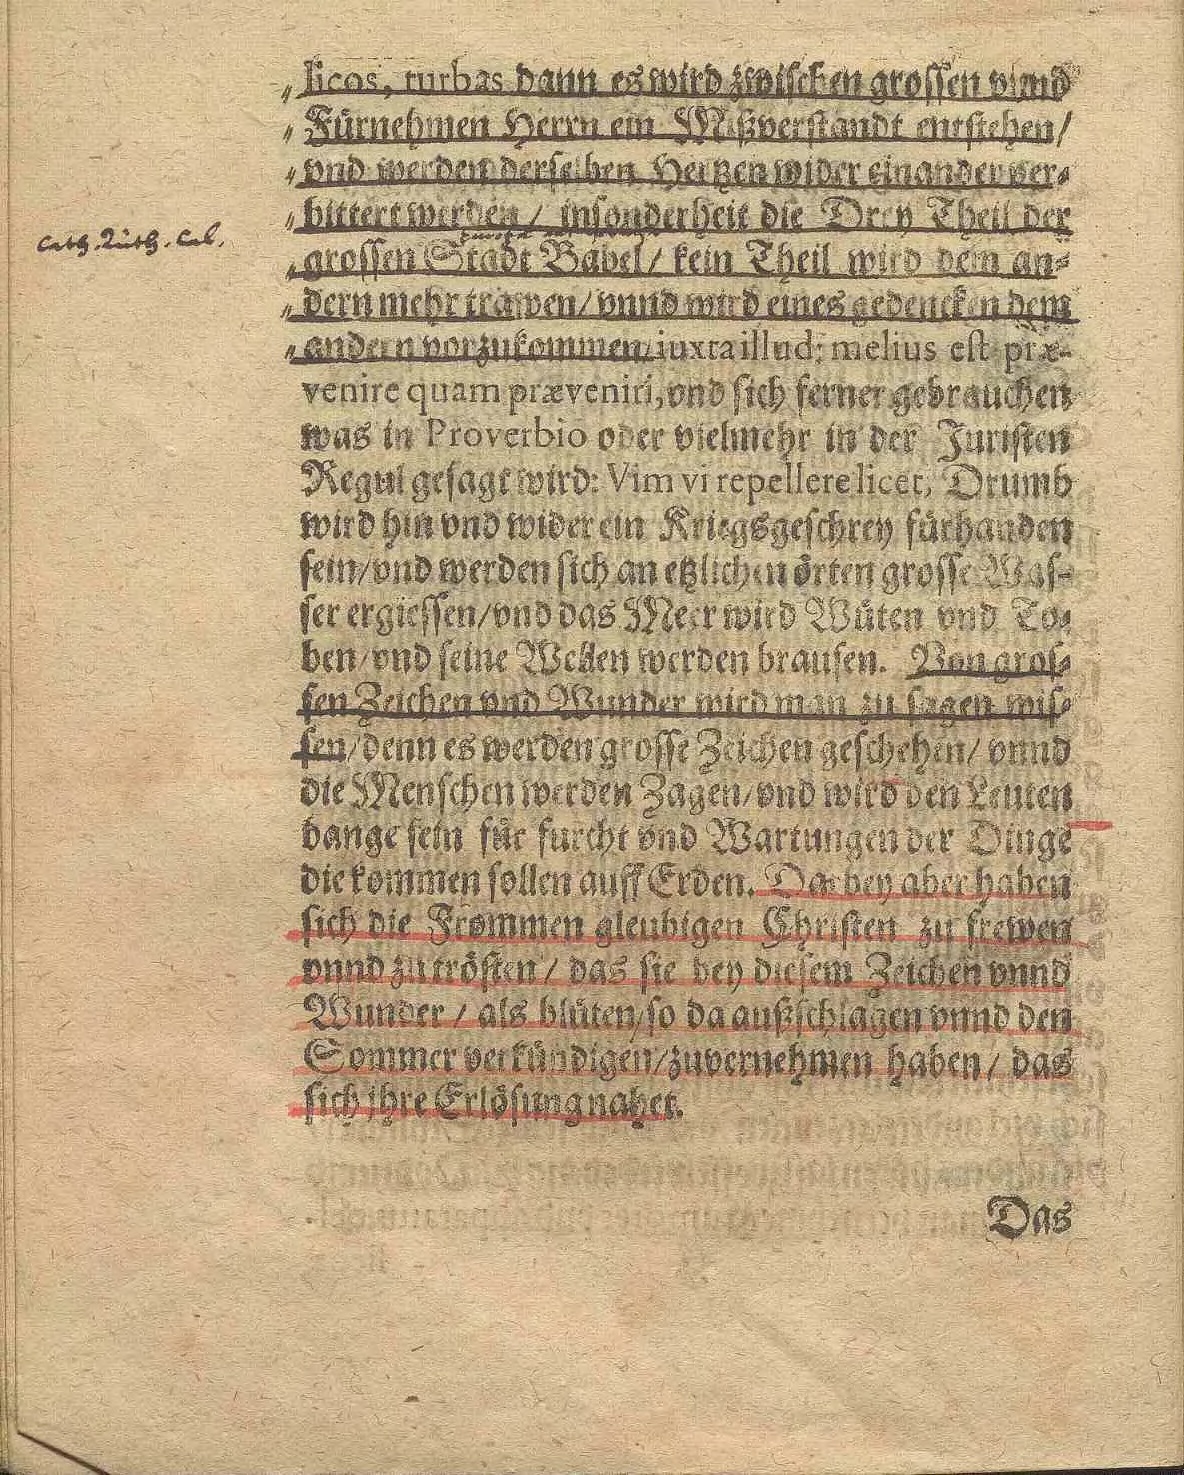 licos, turbas dann es wird zwischen grossen vnnd
Fürnehmen Herrn ein Mißverstandt entstehen/
vnd werden derselben Hertzen wider einander ver-
bittert werden/ insonderheit die Drey Theil der
Cath. Luth. Cal.
grossen Stadt Babel/ kein Theil wird dem an-
dern mehr trawen/ vnnd wird eines gedencken dem
andern vorzukommen/ iuxta illud; melius est præ-
venire quam præveniri, vnd sich ferner gebrauchen
was in Proverbio oder vielmehr in der Juristen
Regul gesagt wird: Vim vi repellere licet, Drumb
wird hin vnd wider ein Kriegsgeschrey fürhanden
sein/ vnd werden sich an etzlichen örten grosse Was-
ser ergiessen/ vnd das Meer wird Wüten vnd To-
ben/ vnd seine Wellen werden brausen. Von gros-
sen Zeichen vnd Wunder wird man zu sagen wis-
sen/ denn es werden grosse Zeichen geschehen/ vnnd
die Menschen werden Zagen/ vnd wird den Leuten
bange sein für furcht vnd Wartungen der Dinge
die kommen sollen auff Erden. Darbey aber haben
sich die Frommen gleubigen Christen zu frewen
vnnd zu trösten/ das sie bey diesem Zeichen vnnd
Wunder/ als blüten/ so da außschlagen vnnd den
Sommer verkündigen/ zuvernehmen haben/ das
sich jhre Erlösung nahet.
Das